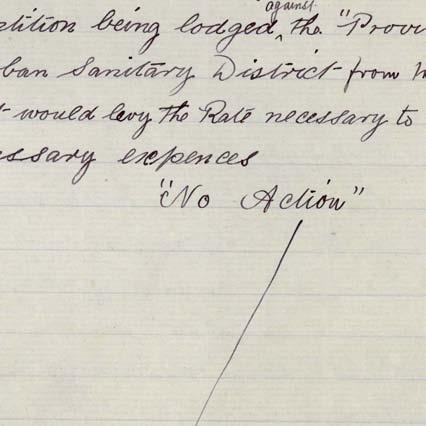 etition being lodged against the "Provi
ban Sanitary District from
would levy the Rate necessary to
essary expences
"No Action"